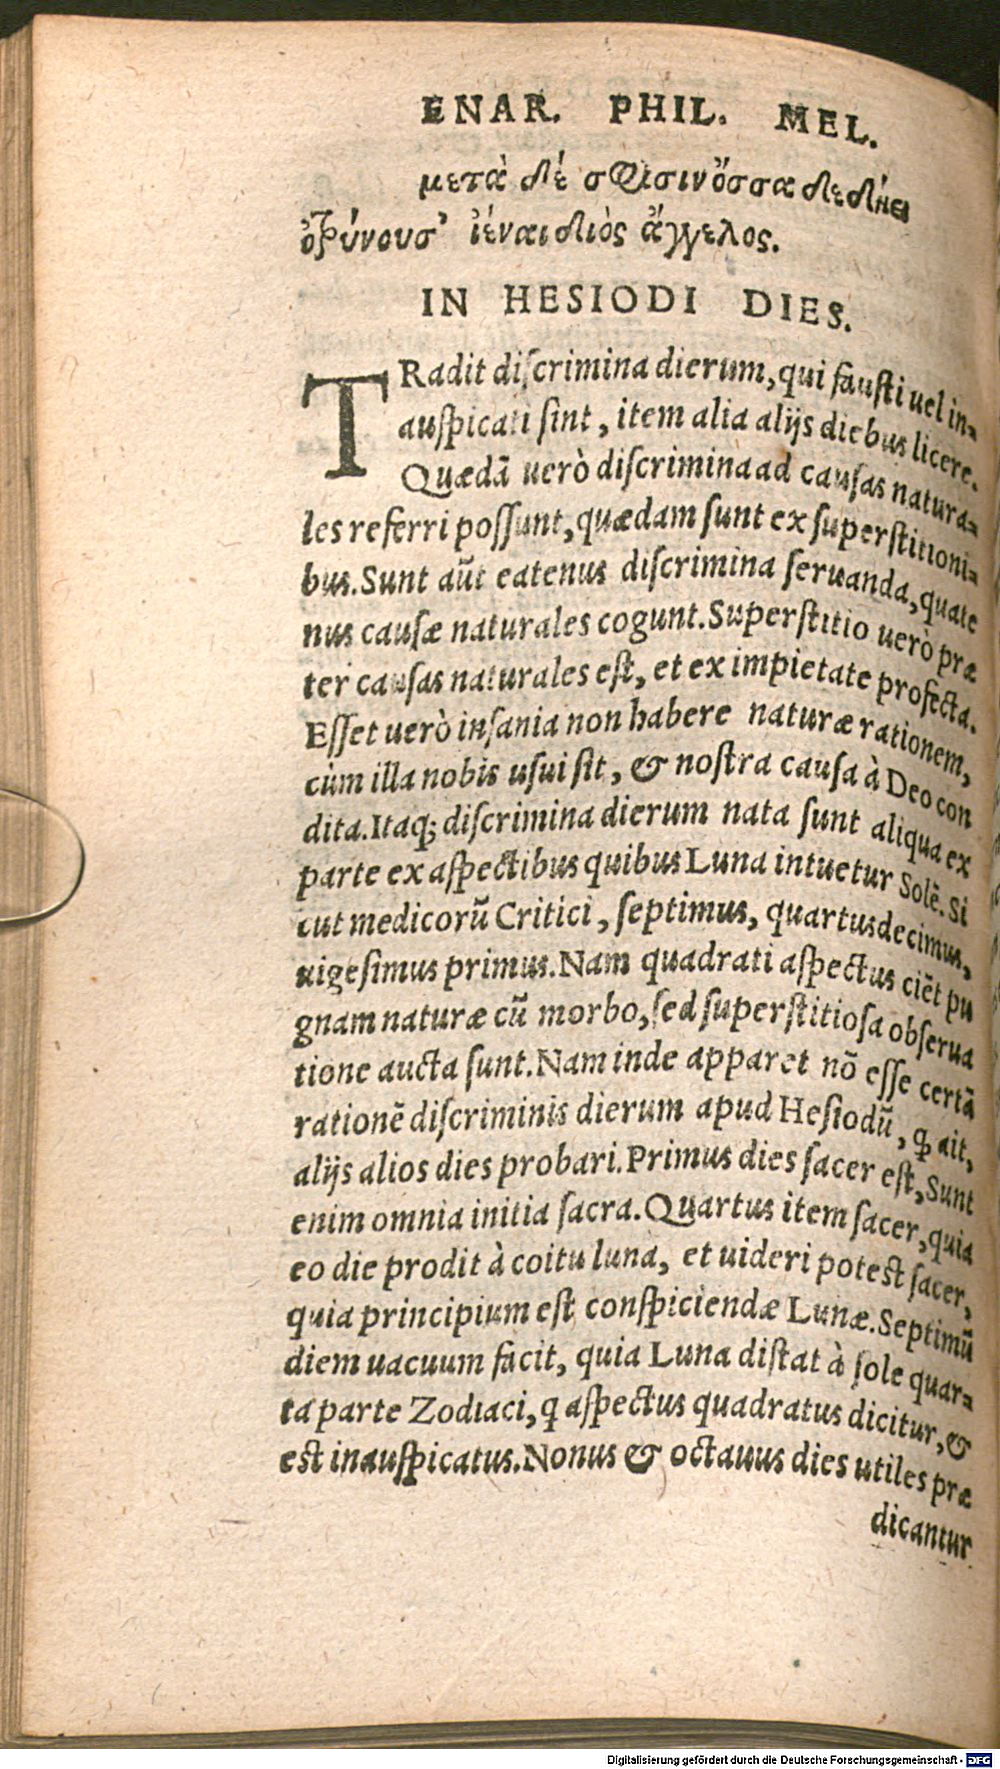 ENAR. PHIL. MEL.
μετὰ δέ σφισινὄσσα δεδήει
ὀτρύνουσ' ἰέναι διὸς ἄγγελος.
IN HESIODI DIES.
TRadit diſcrimina dierum, qui fauſti uel in=
auſpicati ſint, item alia alijs diebus licere.
Quædā uerò diſcrimina ad cauſas natura=
les referri poſſunt, quædam ſunt ex ſuperſtitioni=
bus. Sunt aūt eatenus diſcrimina ſeruanda, quate
nus cauſæ naturales cogunt. Superſtitio uerò præ
ter cauſas naturales eſt, et ex impietate profecta.
Eſſet uerò inſania non habere naturæ rationem,
cùm illa nobis uſui ſit, & noſtra cauſa à Deo con
dita. Itaq; diſcrimina dierum nata ſunt aliqua ex
parte ex aſpectibus quibus Luna intuetur Solē. Si
cut medicorū Critici, ſeptimus, quartusdecimus,
uigeſimus primus. Nam quadrati aſpectus ciēt pu
gnam naturæ cū morbo, ſed ſuperſtitioſa obſerua
tione aucta ſunt. Nam inde apparet nō eſſe certā
rationē diſcriminis dierum apud Heſiodū, ꝙ ait,
alijs alios dies probari. Primus dies ſacer eſt, Sunt
enim omnia initia ſacra. Quartus item ſacer, quia
eo die prodit à coitu luna, et uideri poteſt ſacer,
quia principium eſt conſpiciendæ Lunæ. Septimū
diem uacuum facit, quia Luna diſtat à ſole quar=
ta parte Zodiaci, q aſpectus quadratus dicitur, &
eſt inauſpicatus. Nonus & octauus dies utiles præ
dicantur
Digitalisierung gefördert durch die Deutsche Forschungsgemeinschaft - DFG